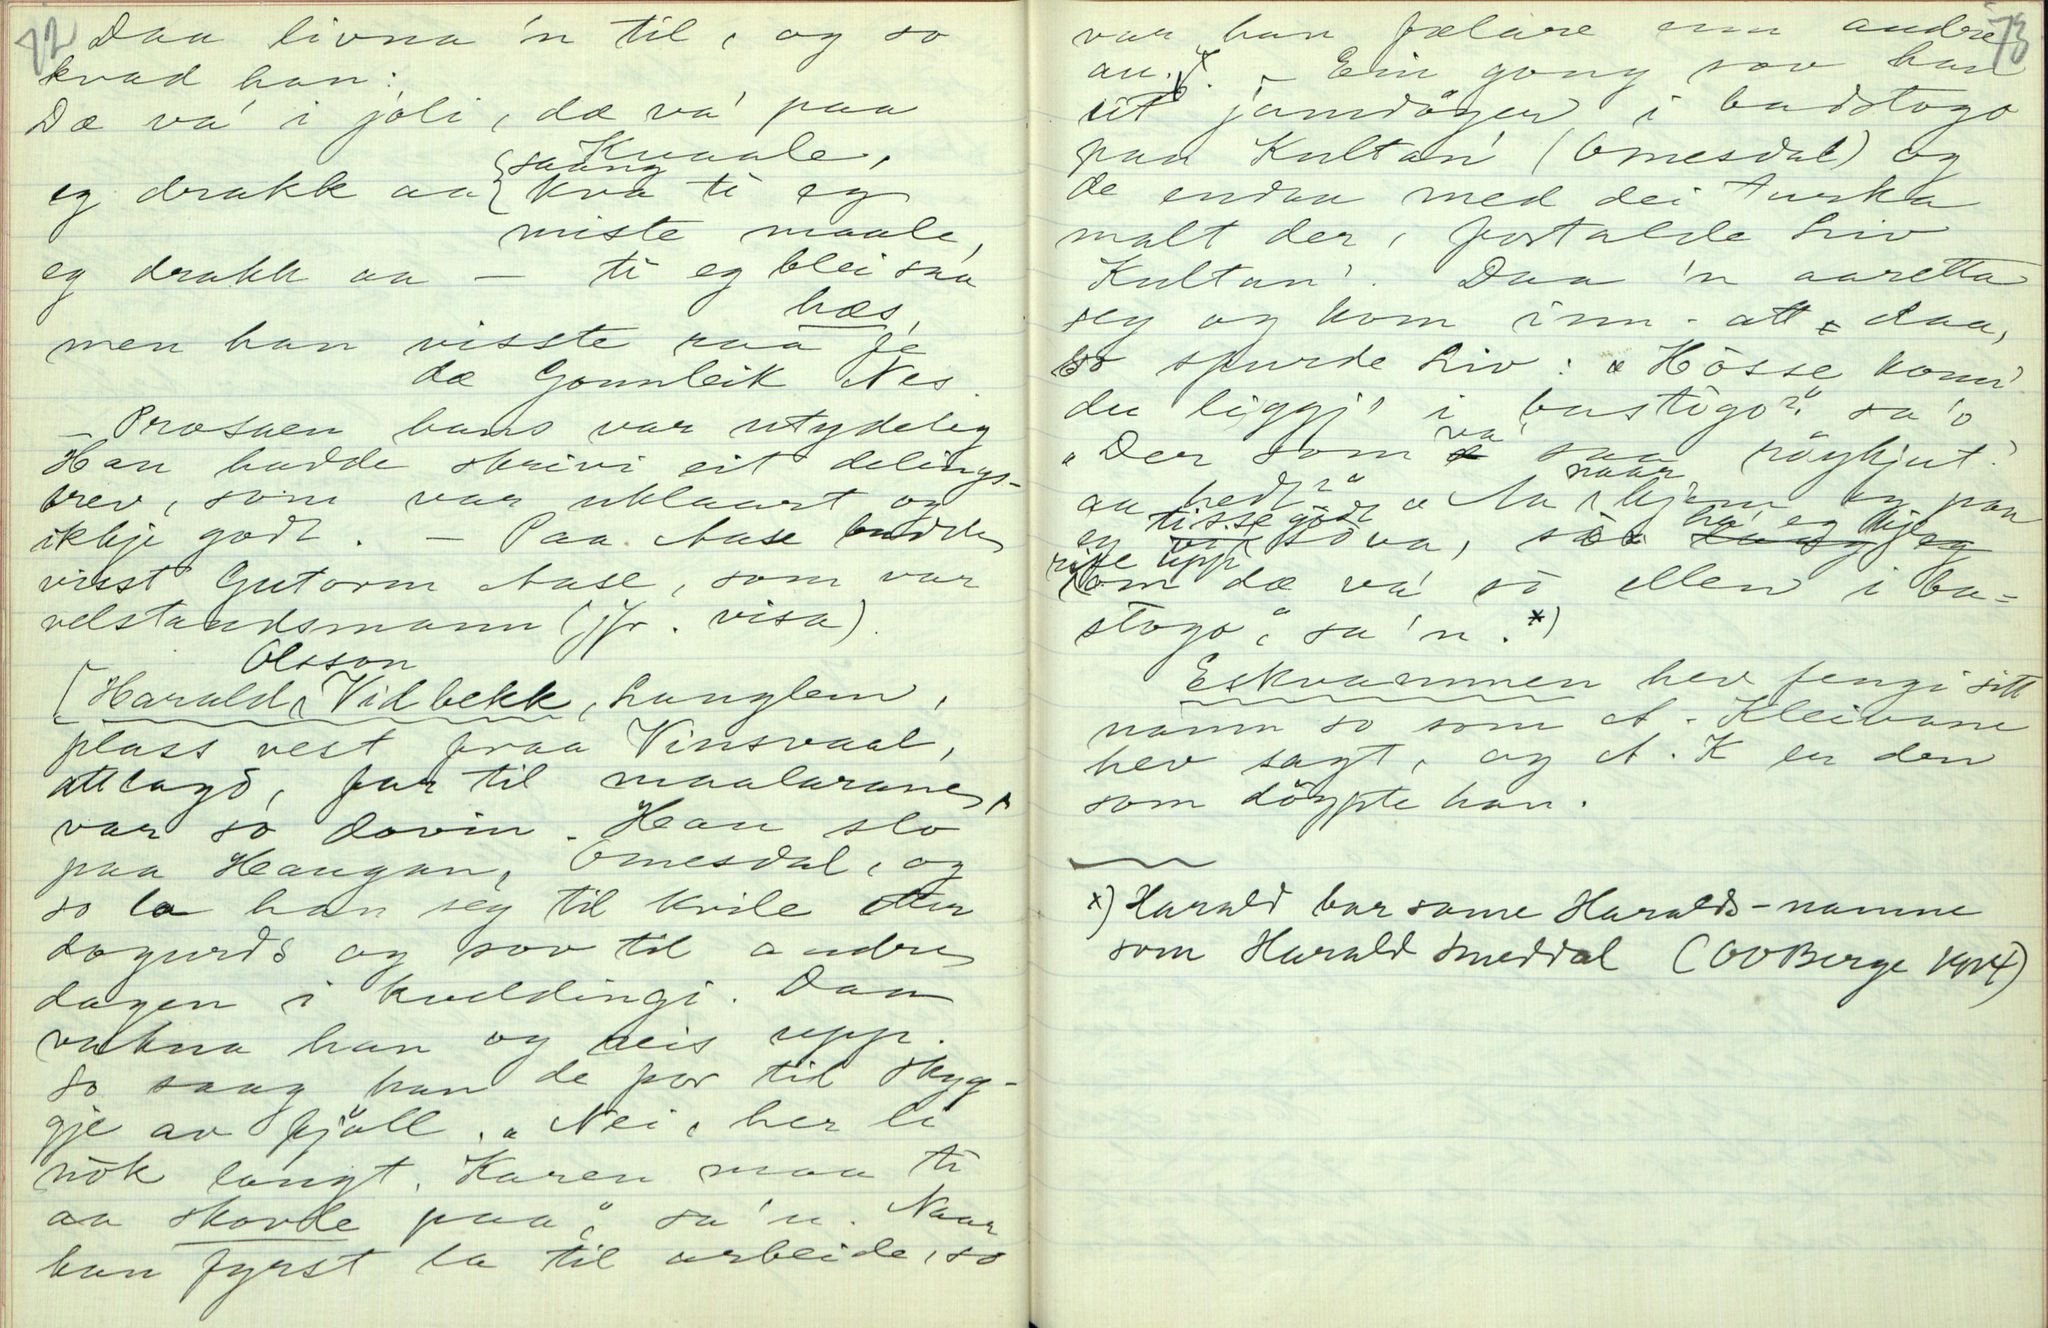 72
Daa livna 'n til, og so
kvad han:
Dæ va' i joli, dæ va' paa
Kvaale,
eg drakk aa { saang kva ti eg
miste maale,
eg drakk aa — ti eg blei saa
hæs,
men han visste raa fe
dæ Gounleik Nes.
— Prosaen hans var utydeleg
Han hadde skrivi eit delings-
brev, som var uklaart og
ikkje godt. — Paa Aase budde
visst Gutorm Aase, som var
velstandsmann (jfr. visa).
Olsson
[Harald Vidbekk, hunglem,
plass vest fraa Vinsvaal,
attlagd, far til maalarane,
var so dovin. Han slo
paa Haugan, Omesdal, og
so la han seg til kvile etter
dogurds og sov til andre
dagen i kveldingi. Daa
vakna han og reis upp.
So saag han de for til skyg-
gje av fjöll. „Nei, her li
nök langt, Karen maa ti
aa skovle paa", sa 'n. Naar
han fyrst la til arbeide, so
73
var han fælare enn andre
au. — Ein gong sov han
eit jamdöger i badstogo
paa Kultan' (Omesdal) og
de endaa med dei turka
malt der, fortalde Liv
Kultan'. Daa 'n aaretta
seg og kom inn-att daa,
so spurde Liv: „Hösse konn'
du liggj' i bastogo?" sa 'o
„Der som va saa röykjut
aa hedt?" „Aa naar kjem eg paa
eg tisse godt sova, saa ha' eg kje
rise upp
om dæ va' so ellen i ba-
stogo", sa 'n. *)
Eskvammen hev fengi sitt
namn so som A. Kleivane
hev sagt, og A. K er den
som döypte han.
x) Harald bar same Haralds-namne
som Harald Smeddal (OOBerge 1914)